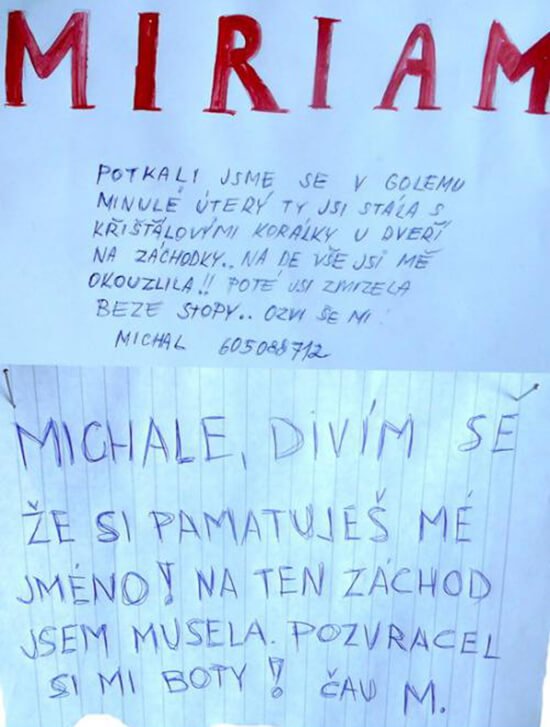 MIRIAM
POTKALI JSME SE V GOLEMU
MINULÉ ÚTERÝ TY JSI STÁLA S
KŘIŠŤÁLOVÝMI KORÁLKY U DVEŘÍ
NA ZÁCHODKY.. NADE VŠE JSI MĚ
OKOUZLILA!! POTÉ JSI ZMIZELA
BEZE STOPY.. OZVI SE MI!
MICHAL 605088712
MICHALE, DIVÍM SE
ŽE SI PAMATUJEŠ MÉ
JMÉNO! NA TEN ZÁCHOD
JSEM MUSELA. POZVRACEL
SI MI BOTY! ČAU M.